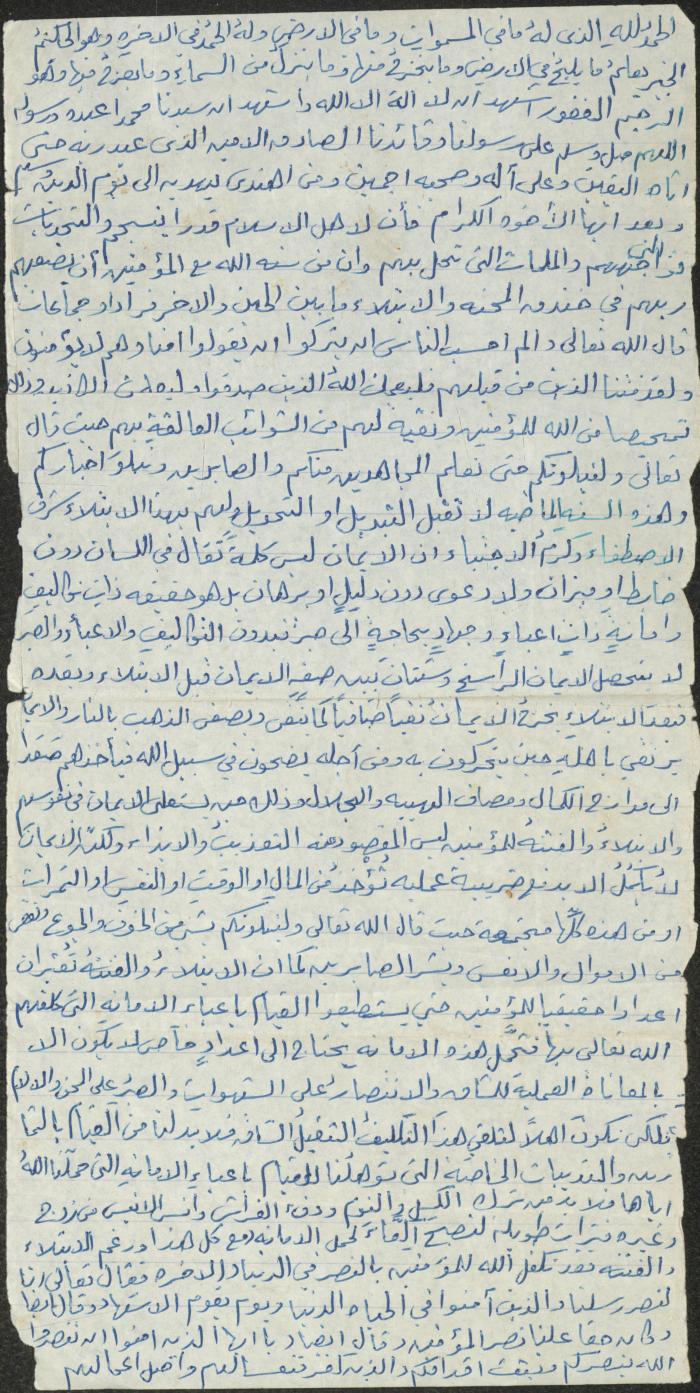 الحمد لله الذى لهُ ما فى السموات وما فى الارض ولهُ الحمدُ فى الاخره وهو الحكيمُ
الخبير يعلمُ ما يلجُ في الارض وما يخرجُ منها وما ينزل من السماءِ وما يعرجُ فيها وهو
الرحيم الغفور اشهد ان لا اله الا الله واشهد ان سيدنا محمداً عبده ورسوله
اللهم صل وسلم على رسولنا وقائدنا الصادق الامين الذى عبد ربه حتى
اتاه اليقين وعلى آله وصحبه اجمعين ومن اهتدى بهديه الى يوم الدين
وبعد ايها الأخوه الكرام فأن لاهل الاسلام قدراً ينسجم والتحديات
التى تواجههم والملمات التى تحل بهم وان من سنه الله مع المؤمنين أن يضعهم
ربهم في خندق المحنه والابتلاء ما بين الحين والاخر فراداً وجماعات
قال الله تعالى الم احسب الناس ان يتركوا ان يقولوا امنا وهم لا يفتنون
ولقد فتنا الذين من قبلهم فليعلمن اللهُ الذين صدقوا وليعلمن الكاذبين وذالك
تمحيصا من الله للمؤمنين وتنقيه لهم من الشوائب العالقةِ بهم حيث قال
تعالى ولنبلونكم حتى نعلم المجاهدين منكم والصابرين ونبلوَ اخباركم
وهذه السنه الماضيه لا تقبل التبديل او التحويل ولهم بهذا الابتلاء شرف
الاصطفاء وكرمُ الاجتباء ان الايمان ليس كلمةً تُقال فى اللسان دون
ضابط او ميزان ولا دعوى دون دليلٍ او برهان بل هو حقيقه ذات تكاليفٍ
وامانةٍ ذات اعباءٍ وجهادٍ بحاجةٍ الى صبرٍ فبدون التكاليفِ والاعباء والصبر
لا يتحصل الايمان الراسخ وشتان بين صفهِ الايمان قبل الابتلاء وبعده
فبعد الابتلاءِ يخرجُ الايمانُ نقياً صافياً كما يُنقى ويُصفى الذهب بالنار والايمان
يرتقي باهلهِ حين يتحركون به ومن أجله يضحون فى سبيل الله فيأخذهم صَعَداً
الى مدارج الكمال ومصاف الهيبه والجلال وذلك حين يستعلى الايمان فى نفوسهم
والابتلاءُ والفتنةُ للمؤمنين ليس المقصود منه التعذيبُ والايذاء ولكنّ الايمانَ
لا يكتملُ الا بدفع ضريبة عمليه تُؤخذُ من المالِ او الوقتِ او النفسِ او الثمرات
او من هذه كلِّها مجتمعه حيث قال الله تعالى ولنبلونكم بشئ من الخوف والجوع ونقص
من الاموال والانفس وبشر الصابرين كما ان الابتلاءُ والفتنةُ تُعتبران
اعداداً حقيقياً للمؤمنين حتي يستطيعوا القيام باعباء الامانه التى كلفهم
الله تعالى بها فتحمُّل هذه الامانه يحتاج الى اعدادٍ خاص لا يكون الا
بالمعاناة العمليه للمشاق والانتصارُ على الشهوات والصبرُ على المحن والالام
ولكى نكون اهلاً لتلقى هذا التكليفُ الثقيلُ الشاق فلا بد لنا من القيام بالتما
رين والتدريبات الخاصّة التى تؤهلُنا للقيام باعباء الامانهِ التى حملَنا اللهُ
اياها فلا بدّ من ترك الكسل والنوم ودفء الفراش وانس الانيس من زوجٍ
وغيره فتراتٍ طويله لنصبح أكفاءَ لحمل الامانه ومع كل هذا ورغم الابتلاء
والفتنه فقد تكفل الله للمؤمنين بالنصر فى الدنيا والاخره فقال تعالى انا
لننصر رسلنا والذين آمنوا فى الحياه الدنيا ويوم يقوم الاشهاد وقال ايضا
وكان حقاً علينا نصر المؤمنين وقال ايضاً يا ايها الذين امنوا ان تنصروا
الله ينصركم ويثبت اقدامكم والذين كفروا فتعساً لهم واضل اعمالهم